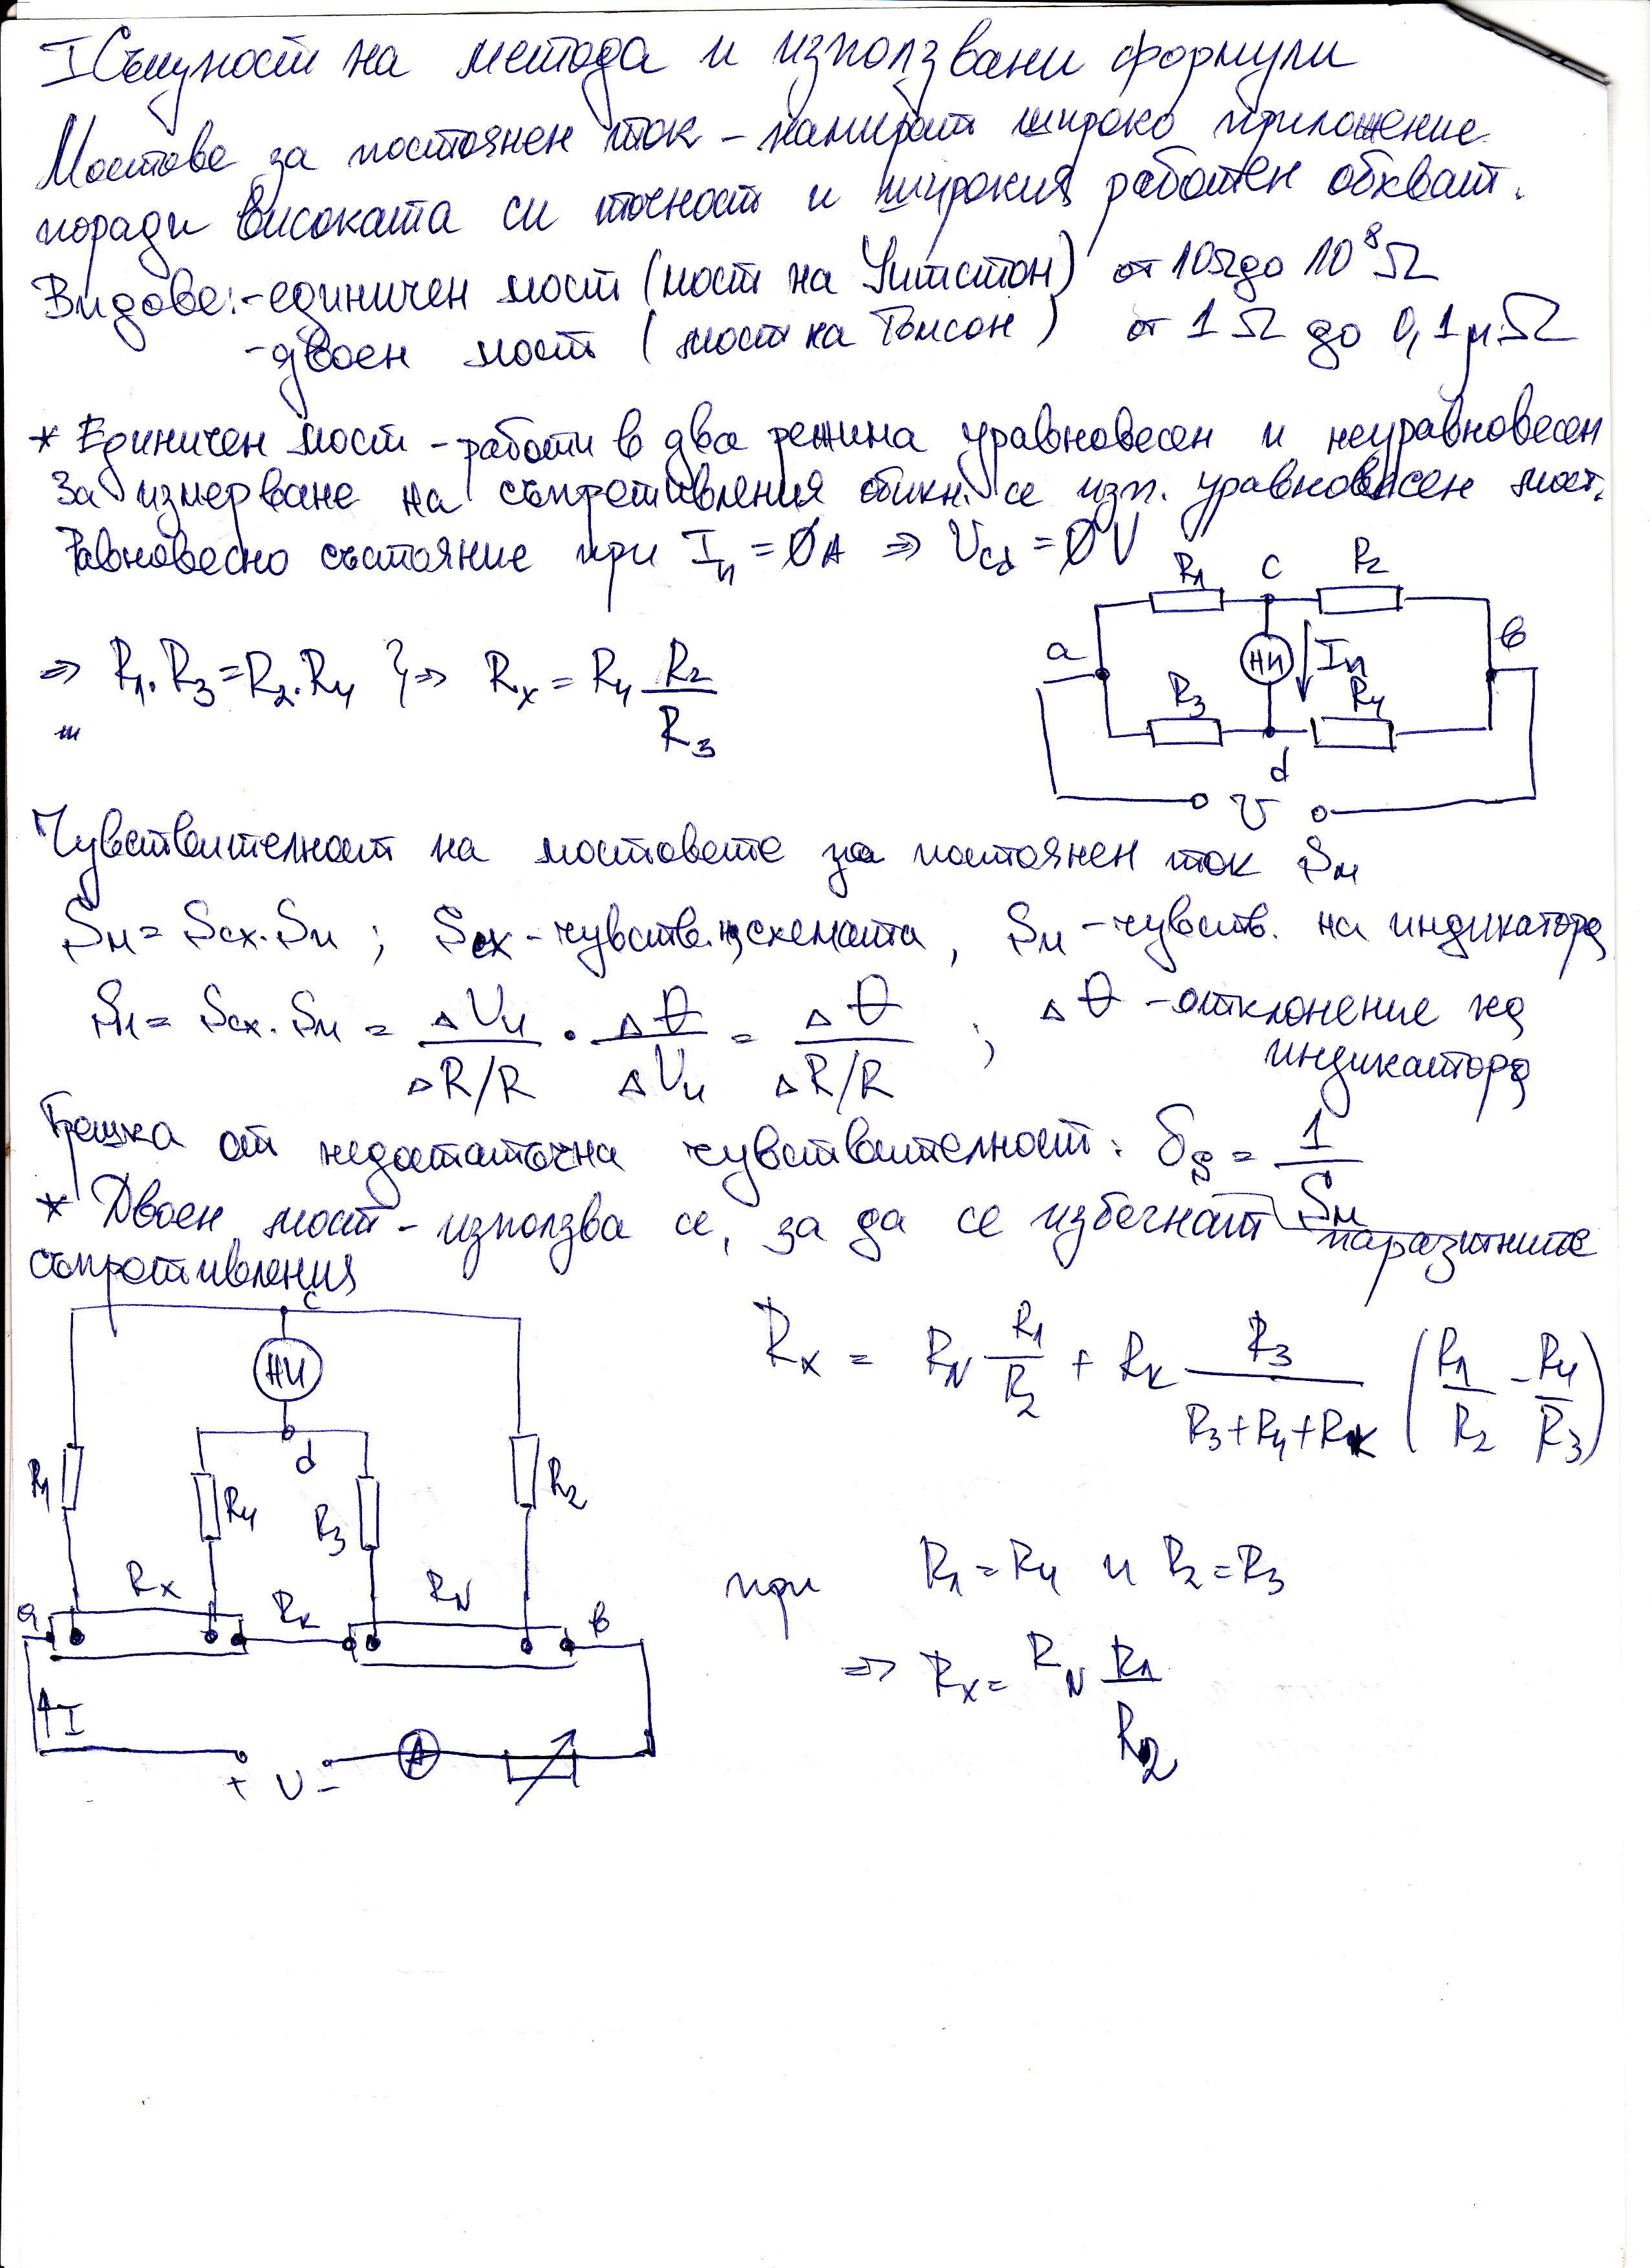 I Същност на метода и използвани формули
Мостове за постоянен ток – намират широко приложение
поради високата си точност и широкия работен обхват.
Видове: - единичен мост (мост на Уитстон) от 10Ω до 10⁸Ω
- двоен мост (мост на Томсон) от 1Ω до 0,1μΩ
* Единичен мост – работи в два режима уравновесен и неуравновесен
За измерване на съпротивления обикн. се изп. уравновесен мост.
Равновесно състояние при Iн = 0A ⇒ Ucd = 0V
R1 c R2
a НИ Iн в
R3 R4
d
U
⇒ R1.R3 = R2.R4 }⇒ Rx = R4 R2/R3
Чувствителност на мостовете за постоянен ток Sм
Sм = Sсх.Sи ; Sсх – чувств. на схемата, Sи – чувств. на индикатора
Sм = Sсх.Sи = ΔUи/(ΔR/R) . Δθ/ΔUи = Δθ/(ΔR/R) ; Δθ – отклонение на
индикатора
Грешка от недостатъчна чувствителност: δs = 1/Sм
* Двоен мост – използва се, за да се избегнат паразитните
съпротивления
c
НИ
d
R1 R4 R3 R2
Rx Rк RN
a в
I
+ U – A
Rx = RN R1/R2 + Rк R3/(R3+R4+Rк) (R1/R2 – R4/R3)
при R1 = R4 и R2 = R3
⇒ Rx = RN R1/R2